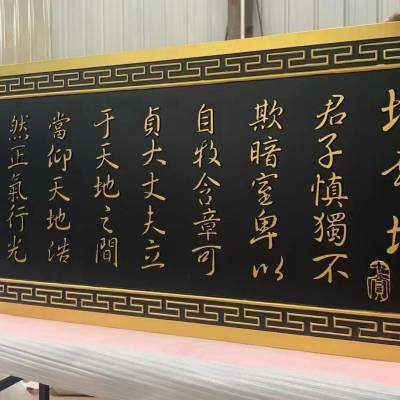 君子慎獨不
欺暗室卑以
自牧含章可
貞大丈夫立
于天地之間
當仰天地浩
然正氣行光